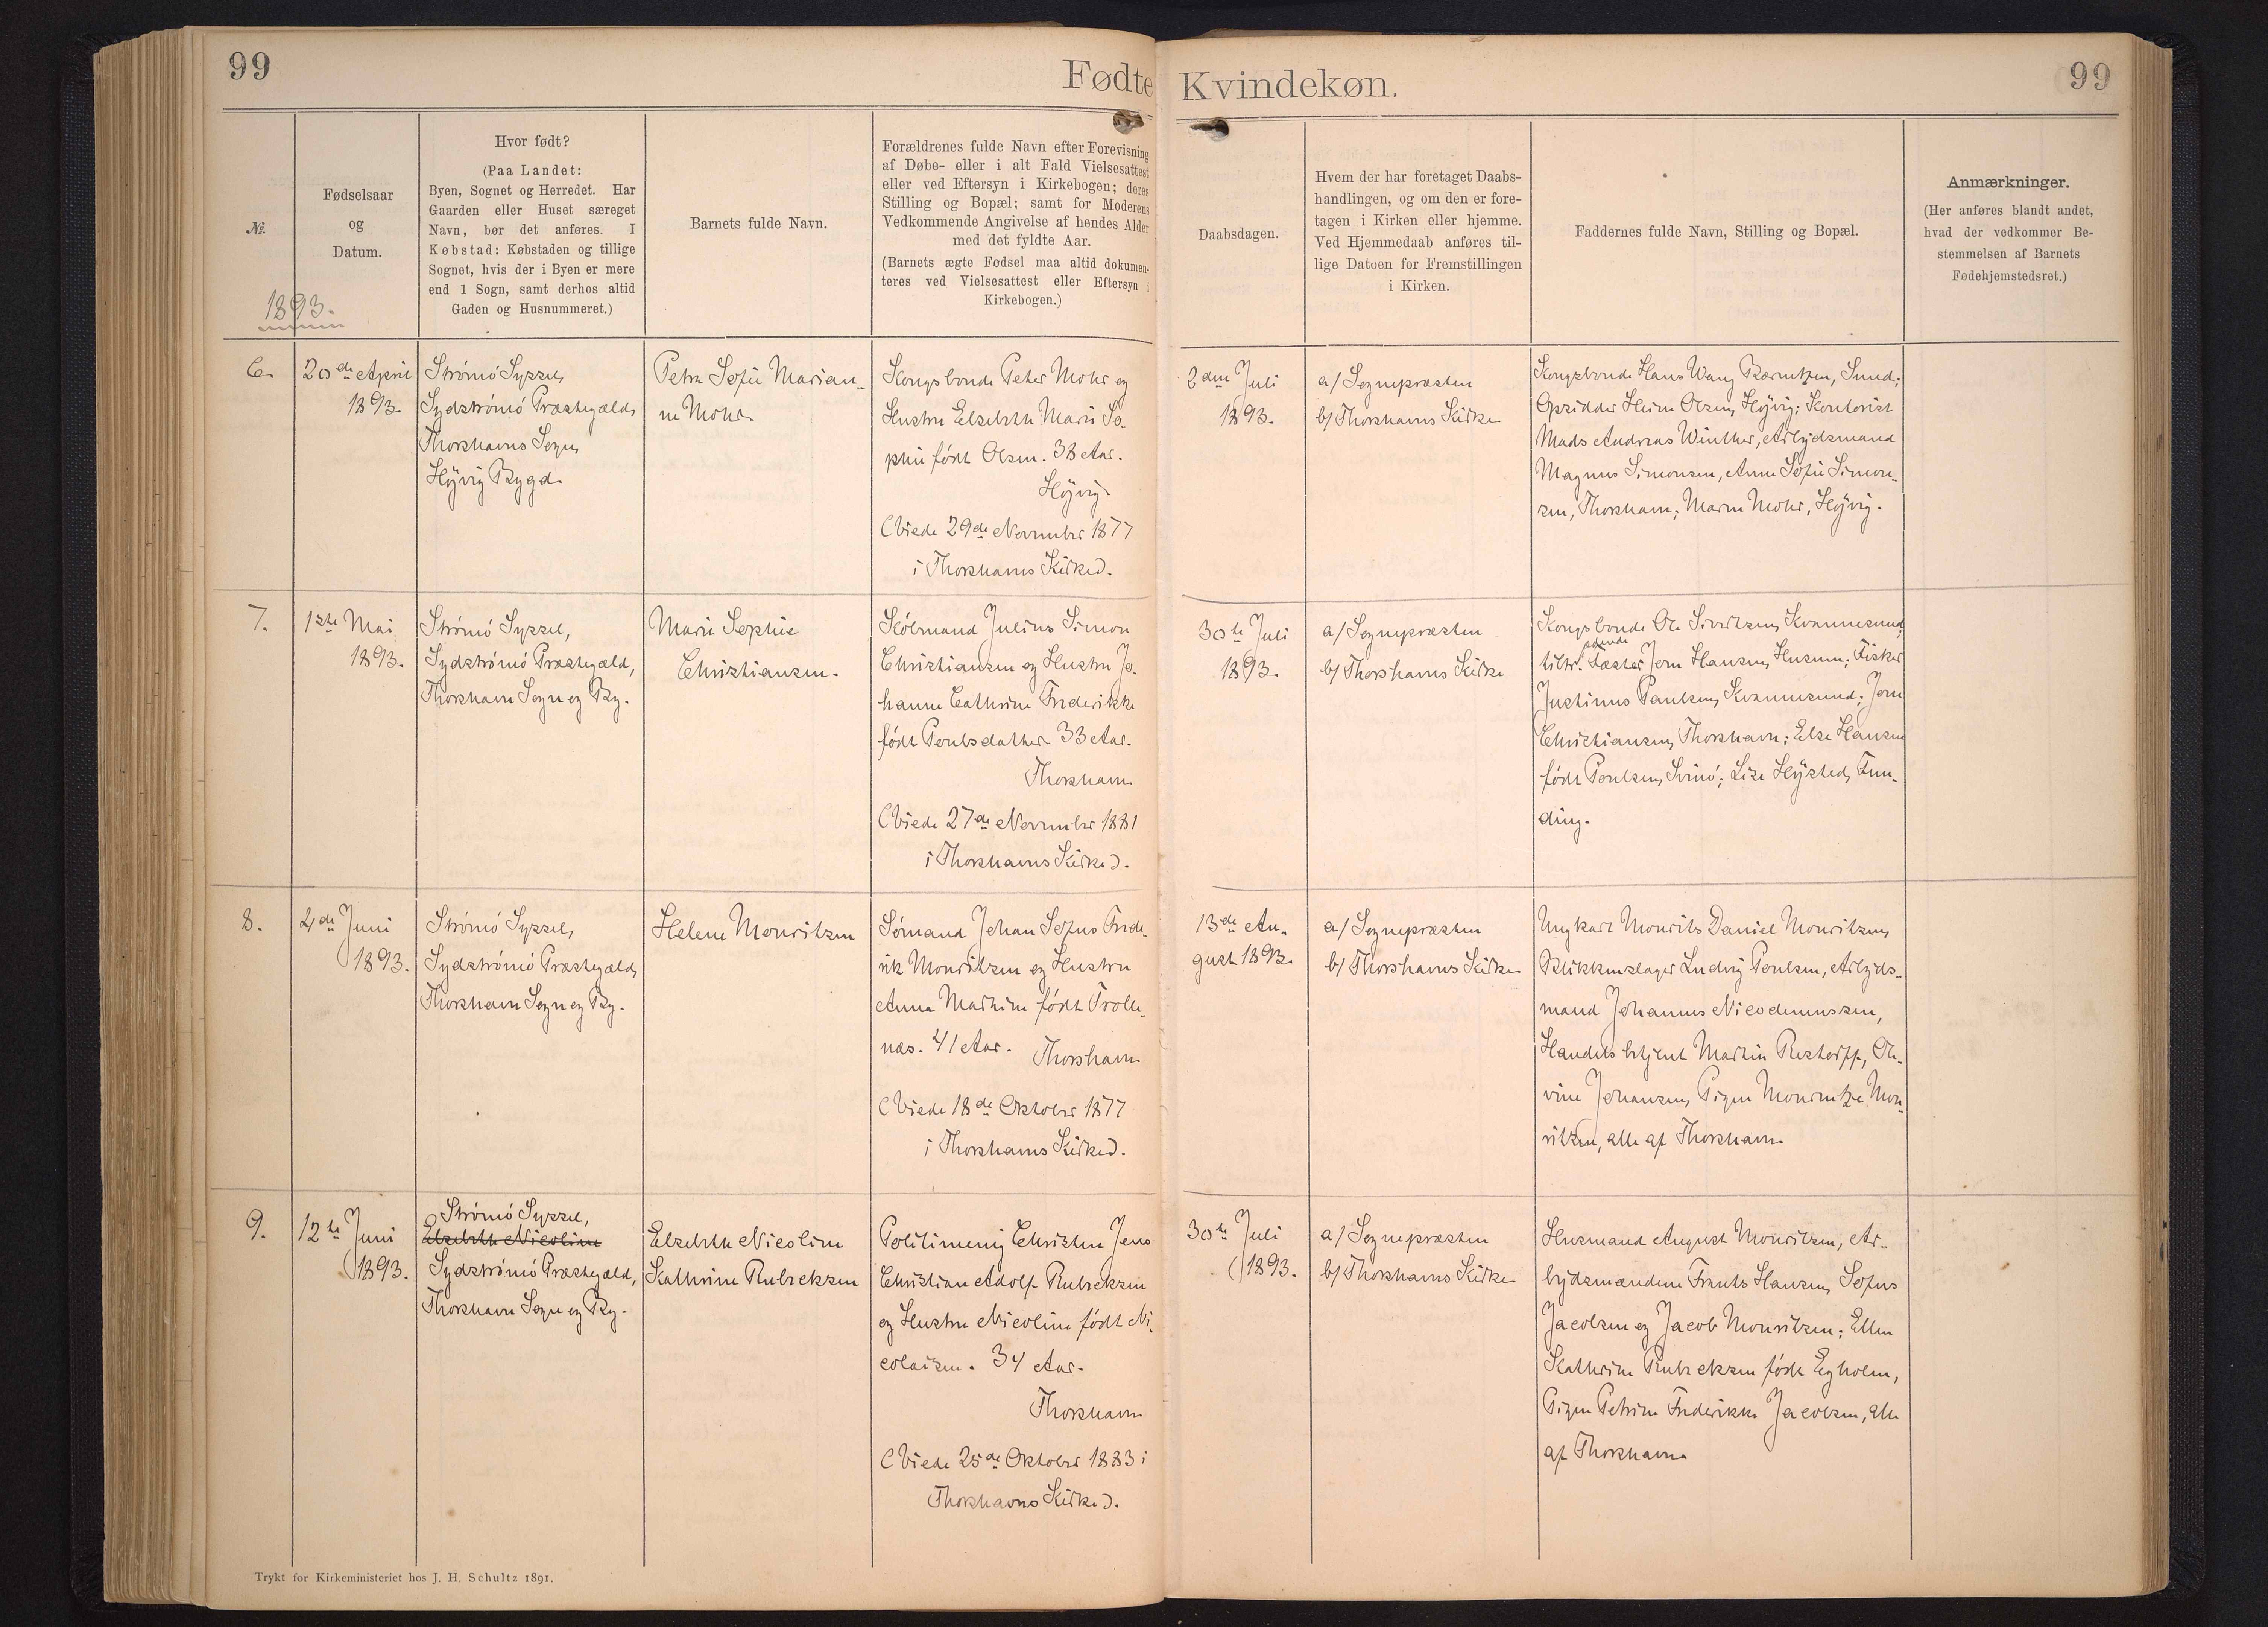 99
Fødte
Kvindekøn.
99
№.
1893.
Fødselsaar
og
Datum.
Hvor født?
(Paa Landet:
Byen, Sognet og Herredet. Har
Gaarden eller Huset særeget
Navn, bør det anføres. I
Købstad: Købstaden og tillige
Sognet, hvis der i Byen er mere
end 1 Sogn, samt derhos altid
Gaden og Husnummeret.)
Barnets fulde Navn.
Forældrenes fulde Navn efter Forevisning
af Døbe- eller i alt Fald Vielsesattest
eller ved Eftersyn i Kirkebogen; deres
Stilling og Bopæl; samt for Moderens
Vedkommende Angivelse af hendes Alder
med det fyldte Aar.
(Barnets ægte Fødsel maa altid dokumen-
teres ved Vielsesattest eller Eftersyn i
Kirkebogen.)
Daabsdagen.
Hvem der har foretaget Daabs-
handlingen, og om den er fore-
tagen i Kirken eller hjemme.
Ved Hjemmedaab anføres til-
lige Datoen for Fremstillingen
i Kirken.
Faddernes fulde Navn, Stilling og Bopæl.
Anmærkninger.
(Her anføres blandt andet,
hvad der vedkommer Be-
stemmelsen af Barnets
Fødehjemstedsret.)
6.
20de April
1893.
Strömö Syssel,
Sydströmö Præstegæld,
Thorshavns Sogn,
Höjvig Bygd.
Petra Sofie Marian-
ne Mohr.
Kongsbonde Peter Mohr og
Hustru Elsebeth Marie So-
phie født Olsen. 38 Aar.
Höjvig.
(Viede 29de November 1877
i Thorshavns Kirke).
2den Juli
1893.
a/ Sognepræsten
b/ Thorshavns Kirke
Kongsbonde Hans Wang Bærentzen, Sund;
Opsidder Heine Olsen, Höjvig; Kontorist
Mads Andreas Winther, Arbejdsmand
Magnus Simonsen, Anne Sofie Simon-
sen, Thorshavn; Maren Mohr, Höjvig.
7.
1ste Mai
1893.
Strömö Syssel,
Sydströmö Præstegæld,
Thorshavn Sogn og By.
Marie Sophie
Christiansen.
Skölmand Julius Simon
Christiansen og Hustru Jo-
hanne Cathrine Frederikke
født Poulsdatter 33 Aar.
Thorshavn
(Viede 27de November 1881
i Thorshavns Kirke).
30te Juli
1893.
a/ Sognepræsten
b/ Thorshavns Kirke
Kongsbonde Ole Sivertsen, Kvannesund;
tiltr. Fæster Joen Hansen, Husum; Fisker
Justinus Paulsen, Kvannesund; Joen
Christiansen, Thorshavn; Else Hansen
født Poulsen, Svinö; Lise Höjsted, Fun-
ding.
8.
4de Juni
1893.
Strömö Syssel,
Sydströmö Præstegæld,
Thorshavn Sogn og By.
Helene Mouritzen
Sömand Johan Sofus Frede-
rik Mouritzen og Hustru
Anna Martine født Trolle-
næs. 41 Aar. Thorshavn
(Viede 18de Oktober 1877
i Thorshavns Kirke).
13de Au-
gust 1893.
a/ Sognepræsten
b/ Thorshavns Kirke
Ungkarl Mourits Daniel Mouritzen,
Blikkenslager Ludvig Poulsen, Arbejds-
mand Johannes Nicodemussen,
Handelsbetjent Martin Restorff, Ol-
vine Johansen, Pigen Mouritze Mou-
ritzen, alle af Thorshavn
9.
12te Juni
1893.
Strömö Syssel,
Elsebeth Nicoline
Sydströmö Præstegæld,
Thorshavn Sogn og By.
Elsebeth Nicoline
Kathrine Rubeksen
Politimenig Christen Jens
Christian Adolf Rubeksen
og Hustru Nicoline født Ni-
colaisen. 34 Aar.
Thorshavn
(Viede 25de Oktober 1883 i
Thorshavns Kirke).
30te Juli
1893.
a/ Sognepræsten
b/ Thorshavns Kirke
Husmand August Mouritzen, Ar-
bejdsmændene Frants Hansen, Sofus
Jacobsen og Jacob Mouritzen; Ellen
Kathrine Rubeksen født Egholm,
Pigen Petrine Frederikke Jacobsen, alle
af Thorshavn
Trykt for Kirkeministeriet hos J. H. Schultz 1891.